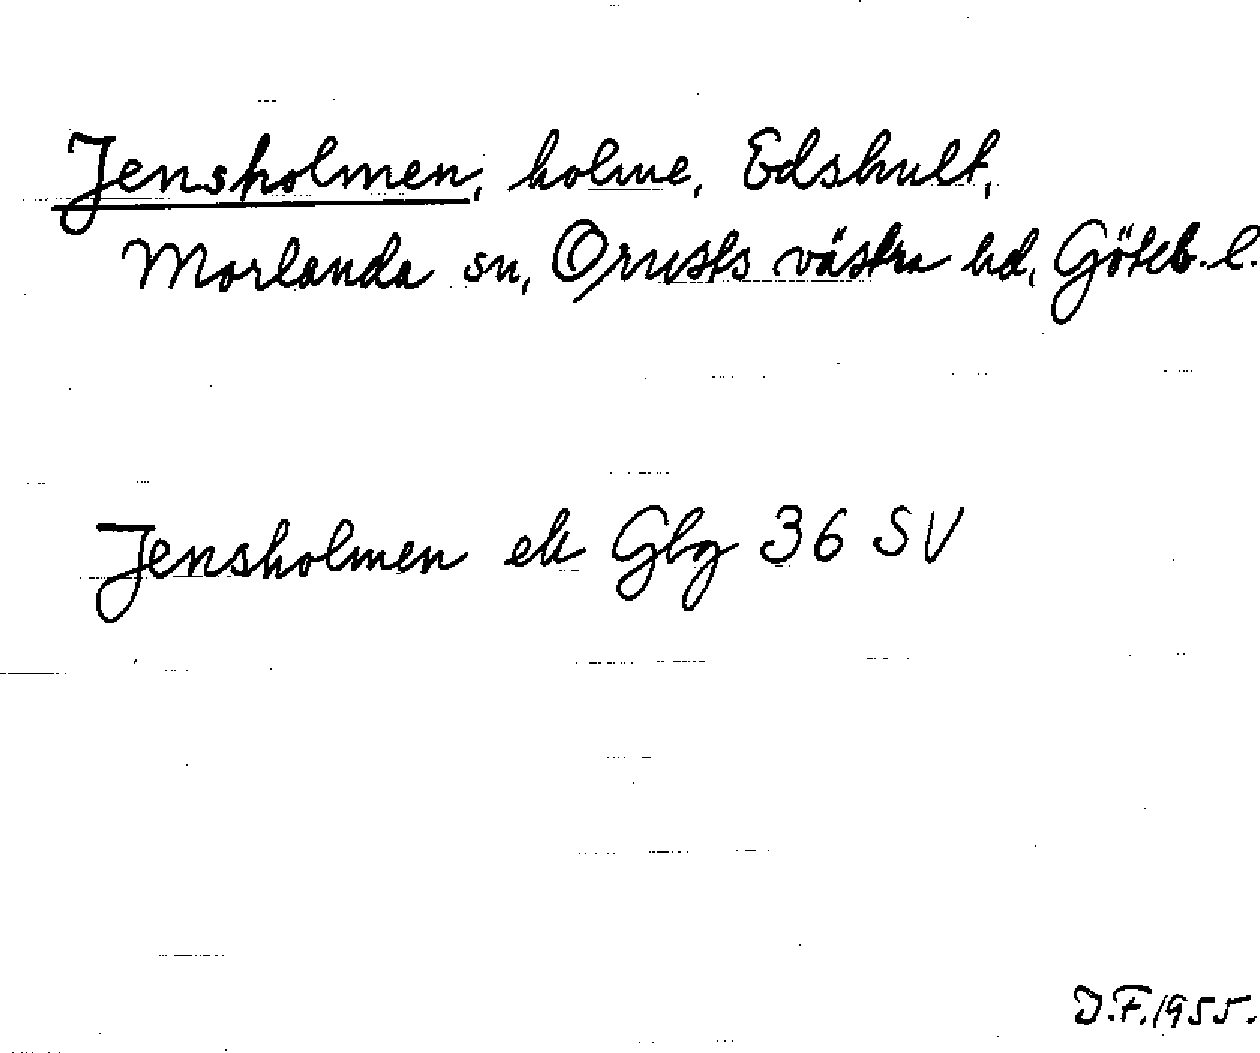 Jensholmen, holme, Edshult,
Morlanda sn, Orusts västra hd, Göteb. l.
Jensholmen ek Gbg 36 SV
D.F. 1955.